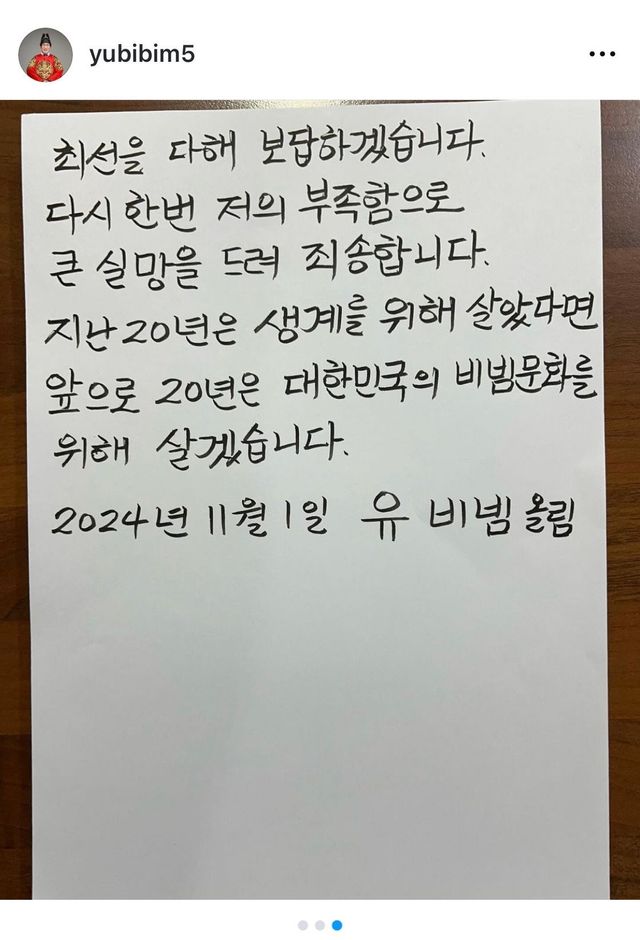 yubibim5
최선을 다해 보답하겠습니다.
다시 한번 저의 부족함으로
큰 실망을 드려 죄송합니다.
지난 20년은 생계를 위해 살았다면
앞으로 20년은 대한민국의 비빔문화를
위해 살겠습니다.
2024년 11월 1일 유 비빔 올림